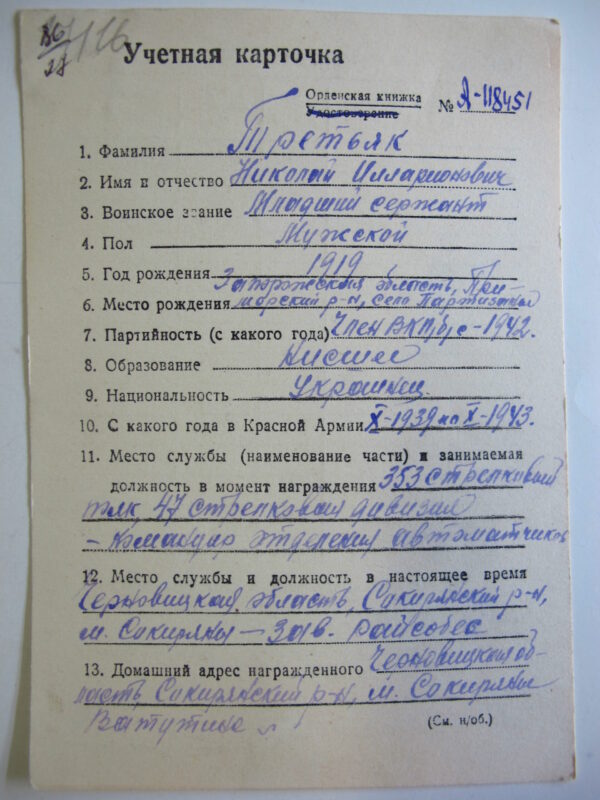 86/28
Учетная карточка
Орденская книжка
Удостоверение № А-118451
1. Фамилия Третьяк
2. Имя и отчество Николай Илларионович
3. Воинское звание Младший сержант
4. Пол Мужской
5. Год рождения 1919
Запорожская область, При-
6. Место рождения морский р-н, село Партизаны
7. Партийность (с какого года) Член ВКП(б) с-1942.
8. Образование Низшее
9. Национальность Украинец
10. С какого года в Красной Армии X-1939 по X-1943.
11. Место службы (наименование части) и занимаемая
должность в момент награждения 353 стрелковый
полк, 47 стрелковая дивизия
– командир отделения автоматчиков
12. Место службы и должность в настоящее время
Черновицкая область, Сокирянский р-н,
м. Сокиряны – зав. райсобес
13. Домашний адрес награжденного Черновицкая об-
ласть, Сокирянский р-н, м. Сокиряны
Ватутина
(См. н/об.)